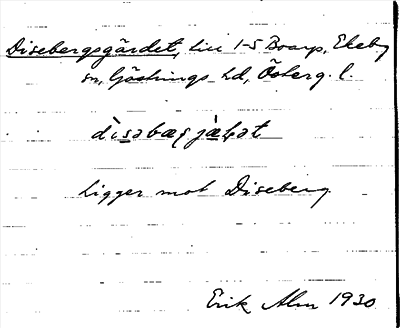 Disebergsgärdet, till 1-5 Boarp, Ekeby
sn, Göstrings hd, Österg. l.
Ligger mot Diseberg.
Erik Alm 1930